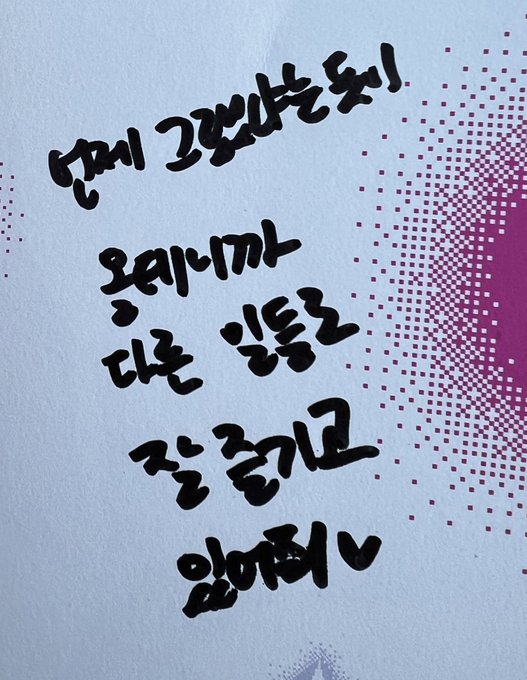 언제 그랬냐는 듯이
올테니까
다른 일들로
잘 즐기고
있어줘♥